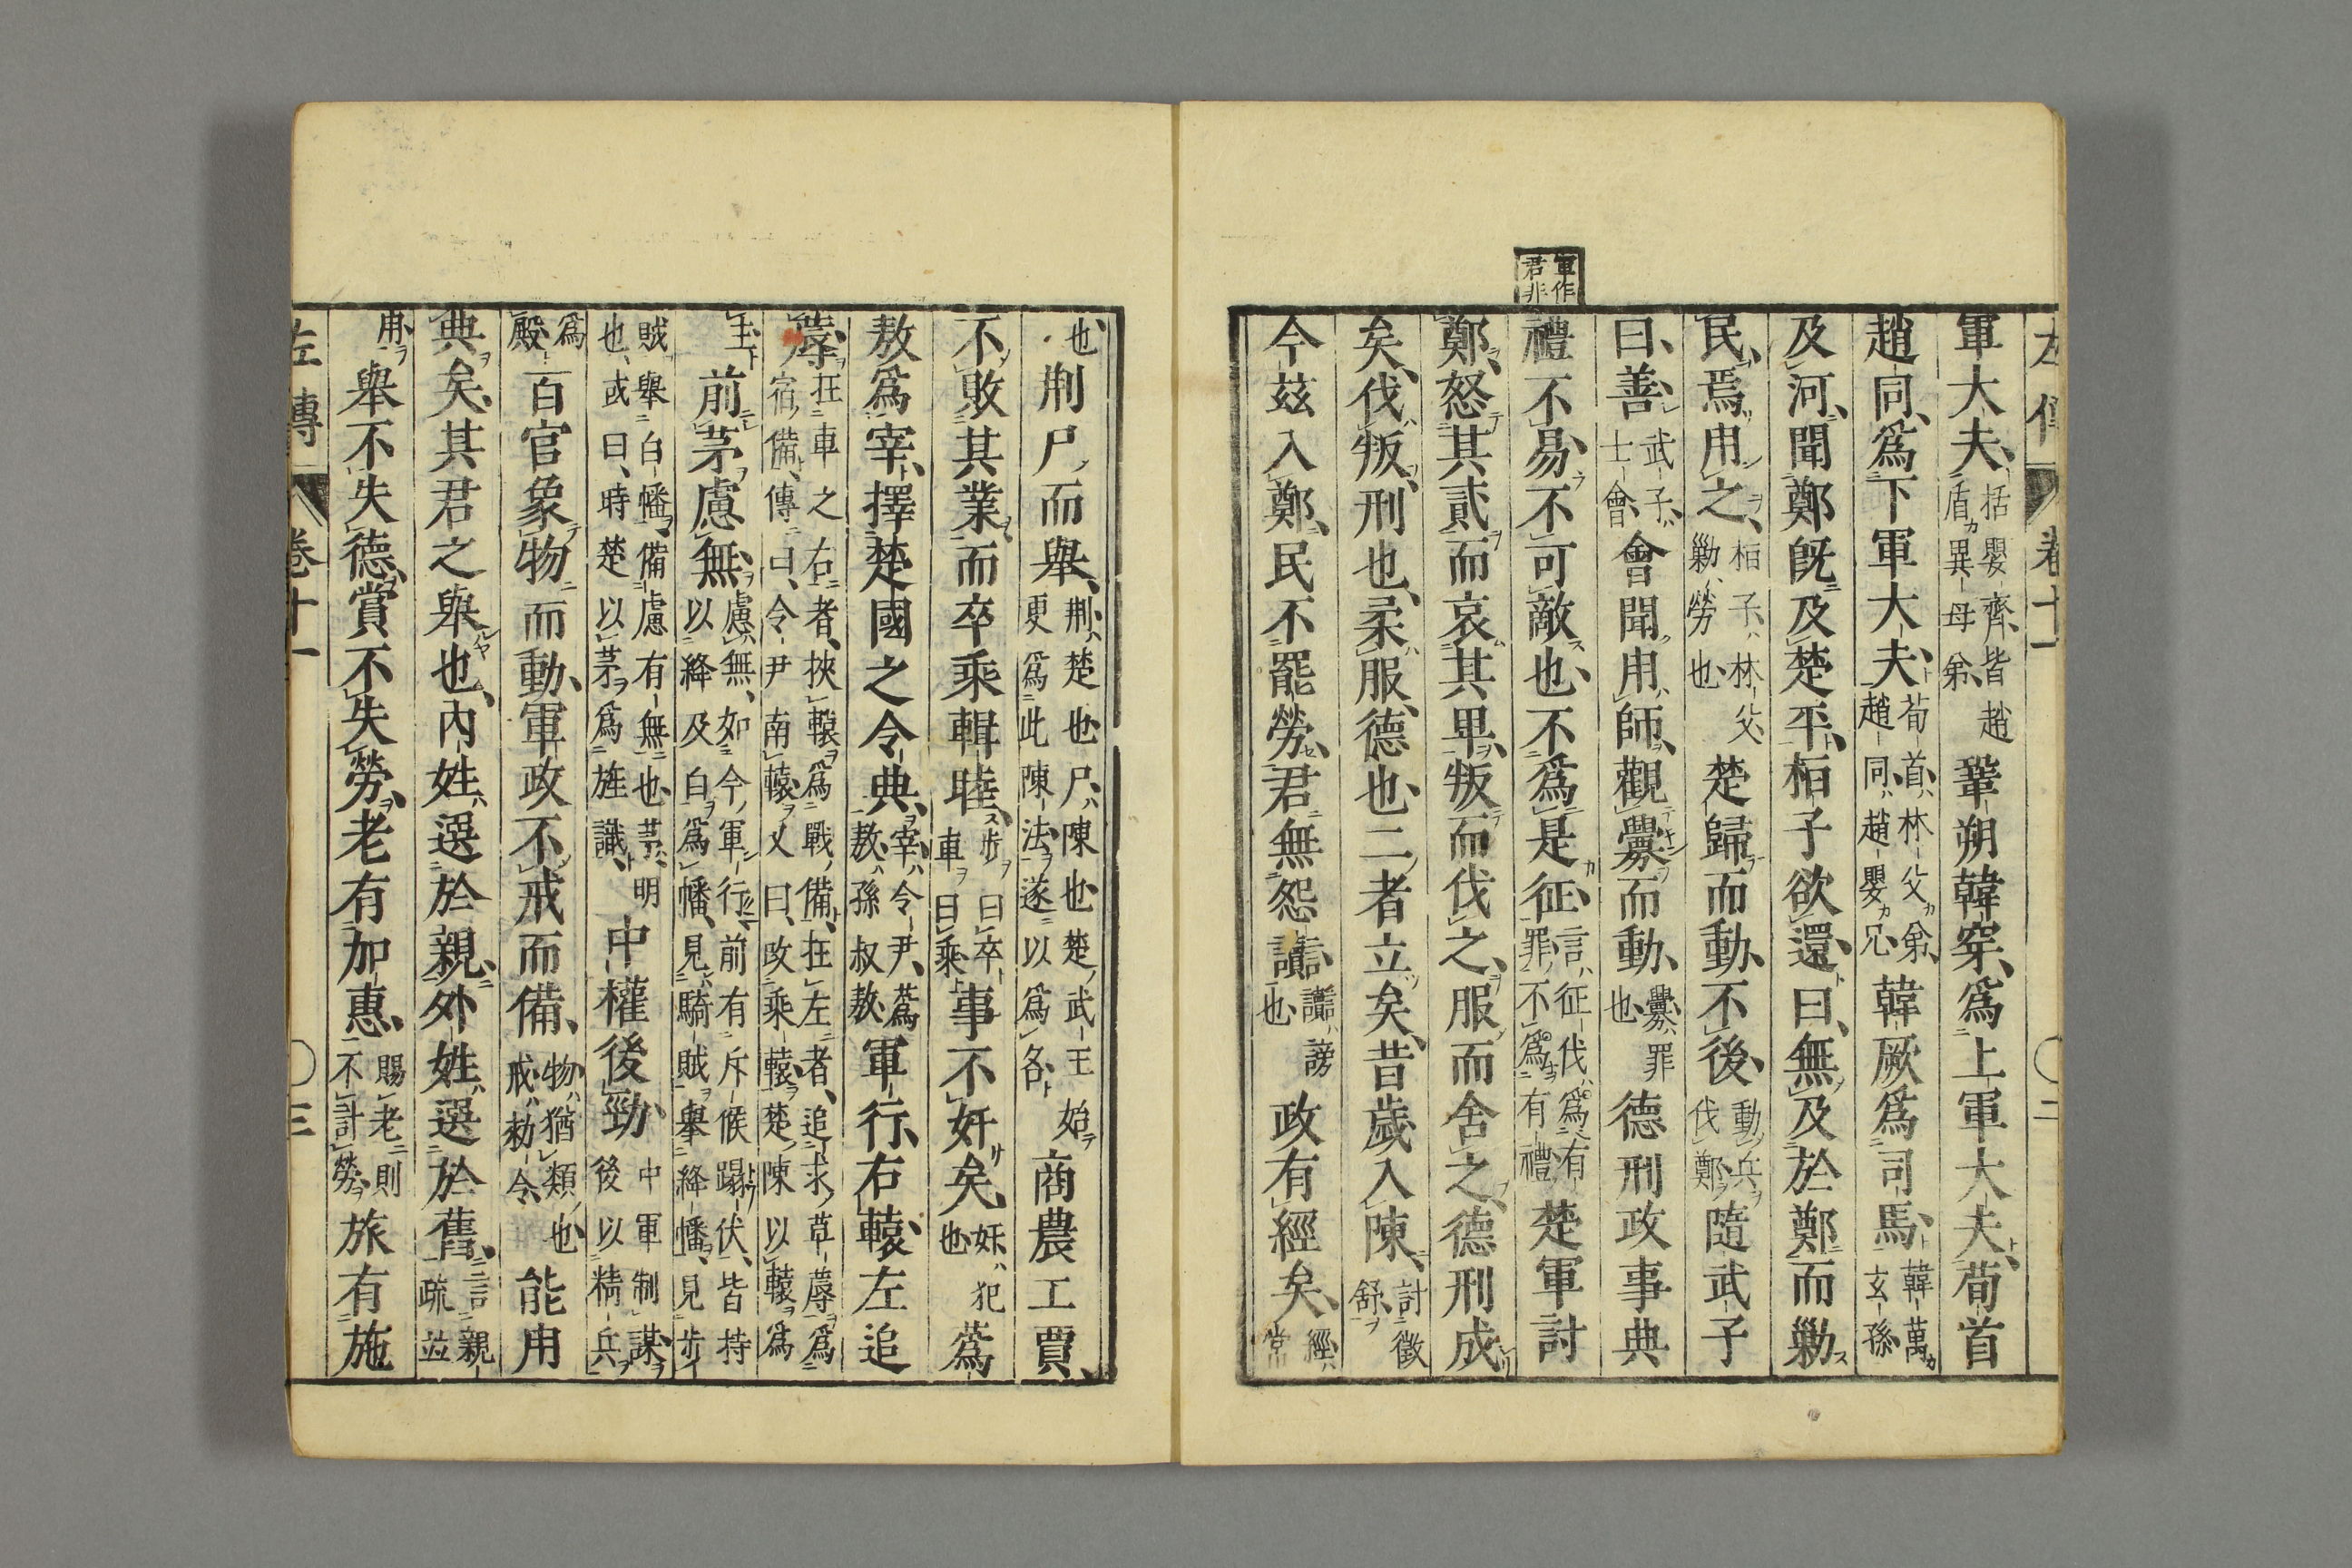 左傳 卷十一 〇二
軍作君非
軍大夫括嬰齊皆趙盾異母弟鞏朔韓穿爲上軍大夫荀首
趙同爲下軍大夫荀首林父弟趙同趙嬰兄韓厥爲司馬韓萬玄孫
及河聞鄭既及楚平桓子欲還曰無及於鄭而勦
民焉用之桓子林父勦勞也楚歸而動不後動兵伐鄭隨武子
曰善武子士會會聞用師觀釁而動釁罪也德刑政事典
禮不易不可敵也不爲是征言征伐爲有罪不爲有禮楚軍討
鄭怒其貳而哀其卑叛而伐之服而舍之德刑成
矣伐叛刑也柔服德也二者立矣昔歲入陳討徵舒
今茲入鄭民不罷勞君無怨讟讟謗也政有經矣經常
也荆尸而舉荆楚也尸陳也楚武王始更爲此陳法遂以爲名商農工賈
不敗其業而卒乘輯睦步曰卒車曰乘事不奸矣奸犯也蔿
敖爲宰擇楚國之令典宰令尹蔿敖孫叔敖軍行右轅左追
蓐在車之右者挾轅爲戰備在左者追求草蓐爲宿備傳曰令尹南轅又曰改乘轅楚陳以轅爲
主前茅慮無慮無如今軍行前有斥候蹋伏皆持以絳及白爲幡見騎賊舉絳幡見步
賊舉白幡備慮有無也茅明也或曰時楚以茅爲旌識中權後勁中軍制謀後以精兵
爲殿百官象物而動軍政不戒而備物猶類也戒勑令能用
典矣其君之舉也內姓選於親外姓選於舊言親疏竝
用舉不失德賞不失勞老有加惠賜老則不計勞旅有施
左傳 卷十一 〇三